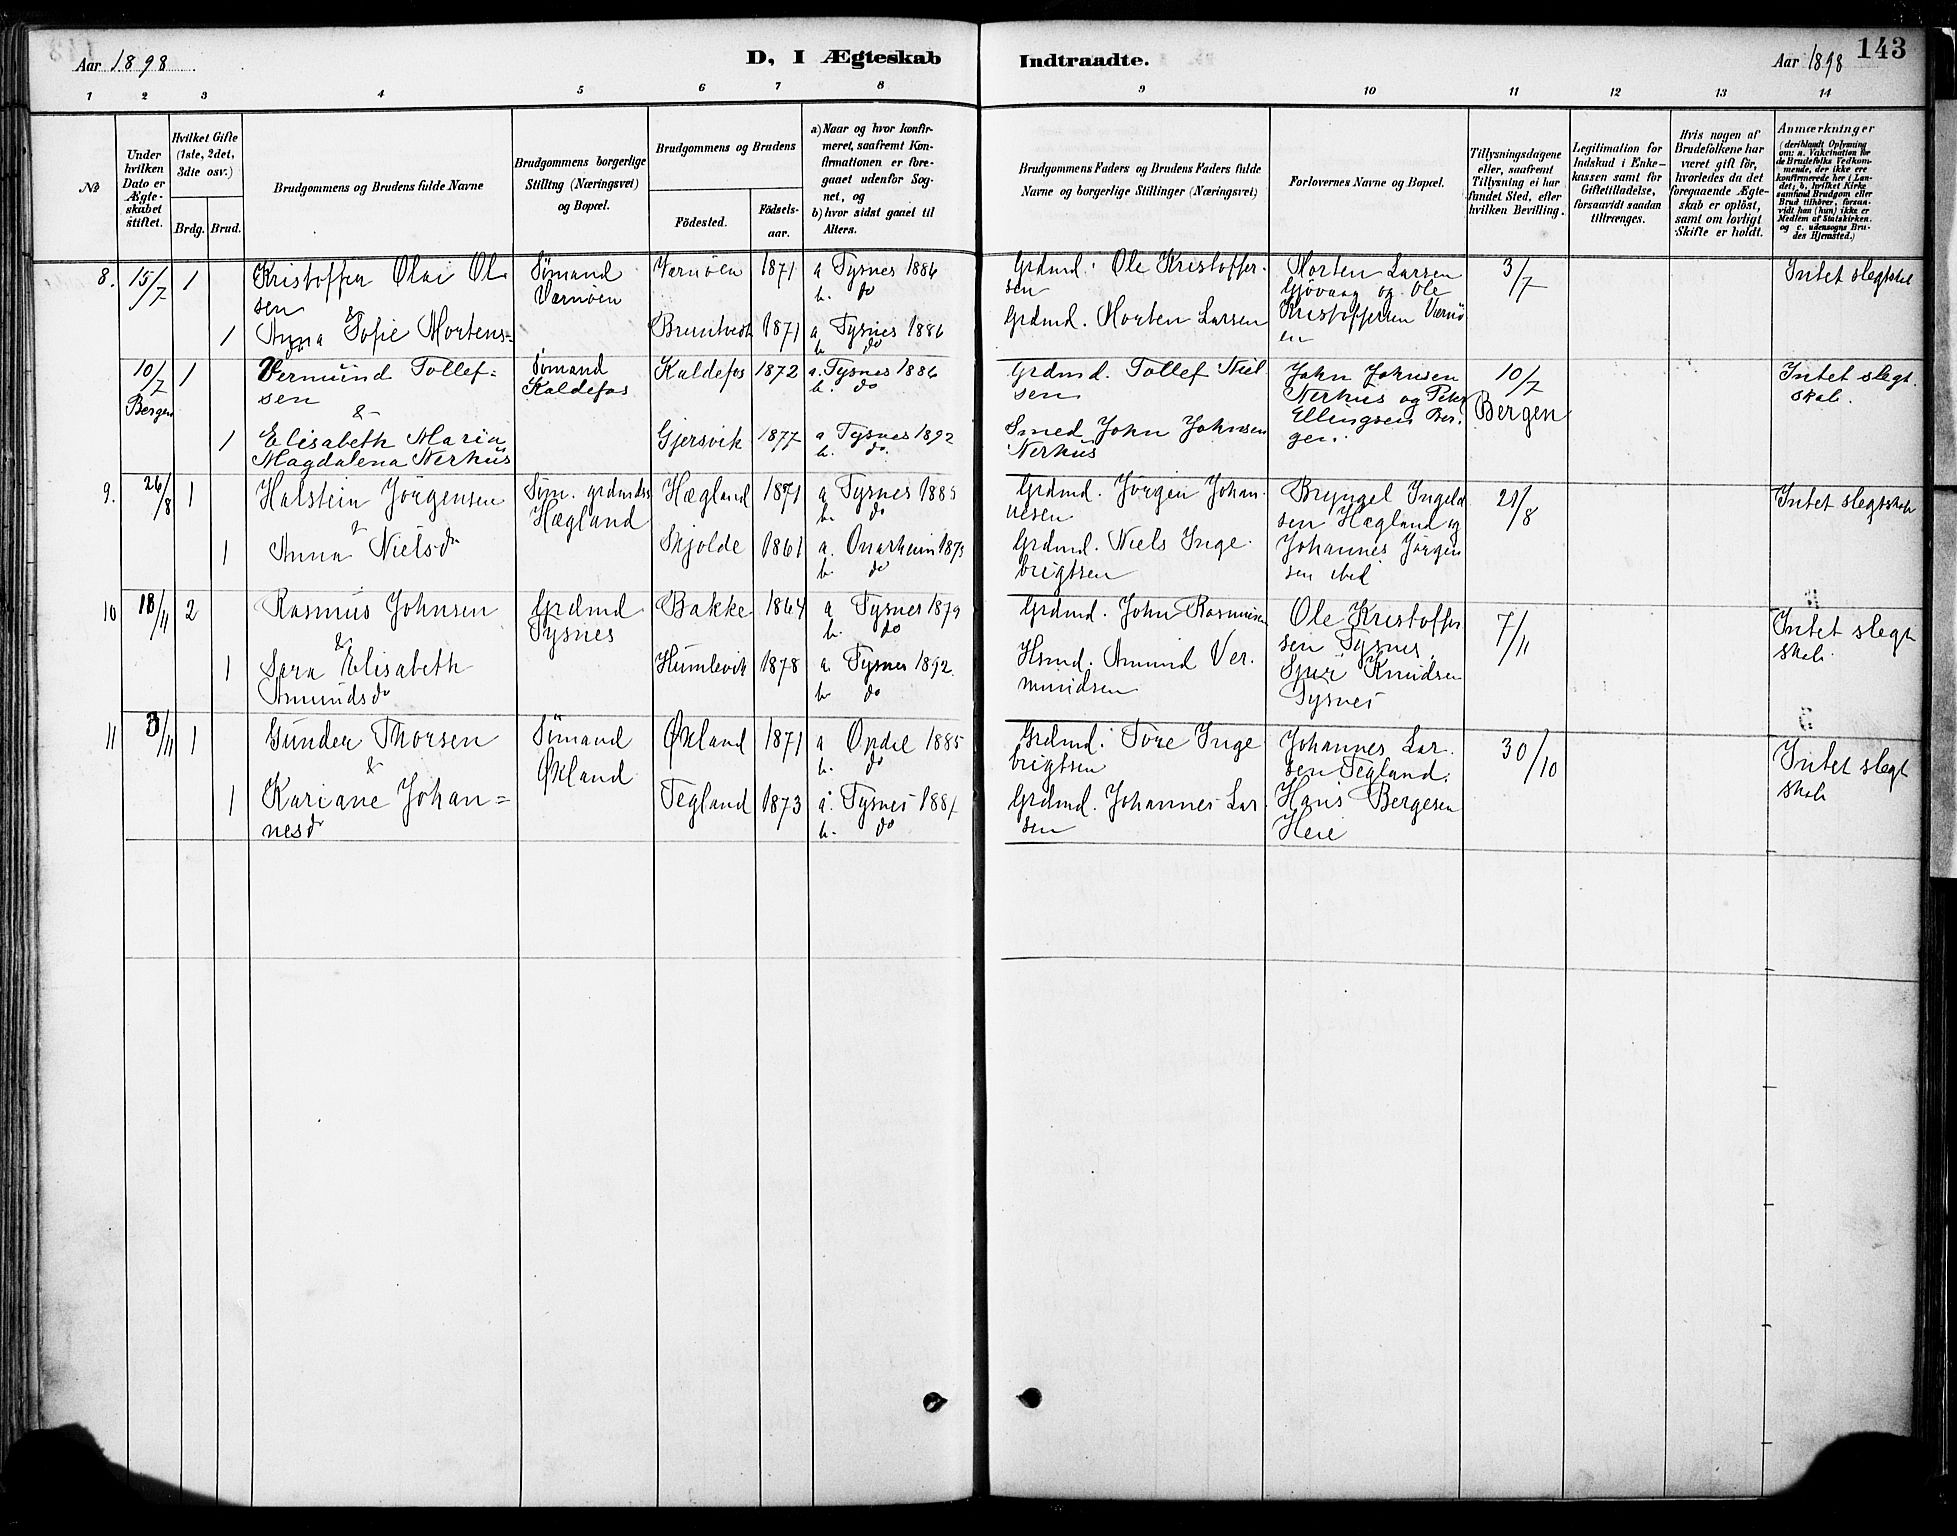 Aar 1898
D, I Ægteskab
Indtraadte.
Aar 1898
143
1 2 3 4 5 6 7 8 9 10 11 12 13 14
No
Under hvilken Dato er Ægteskabet stiftet.
Hvilket Gifte (1ste, 2det, 3die osv.)
Brdg. Brud.
Brudgommens og Brudens fulde Navne
Brudgommens borgerlige Stilling (Næringsvei) og Bopæl.
Brudgommens og Brudens
Födested.
Födsels-aar.
a) Naar og hvor konfirmeret, saafremt Konfirmationen er foregaaet udenfor Sognet, og
b) hvor sidst gaaet til Alters.
Brudgommens Faders og Brudens Faders fulde Navne og borgerlige Stillinger (Næringsvei)
Forlovernes Navne og Bopæl.
Tillysningsdagene eller, saafremt Tillysning ei har fundet Sted, efter hvilken Bevilling.
Legitimation for Indskud i Enkekassen samt for Giftetilladelse, forsaavidt saadan tiltrænges.
Hvis nogen af Brudefolkene har været gift før, hvorledes da det foregaaende Ægteskab er oplöst, samt om lovligt Skifte er holdt.
Anmærkninger
(deriblandt Oplysning om: a. Vakcination for de Brudefolks Vedkommende, der ikke ere konfirmerede her i Landet; b. hvilket Kirkesamfund Brudgom eller Brud tilhører, forsaavidt han (hun) ikke er Medlem af Statskirken. og c. udensogns Brudes Hjemsted.)
8. 15/7 1 Kristoffer Olai Ol
sen
&
1 Anna Sofie Mortens=
dr
Sömand
Værnöen
Værnöen 1871 a Tysnes 1886
b. do
Bruntvedt 1871 a Tysnes 1886
b do
Grdmd. Ole Kristoffer-
sen
Grdmd. Morten Larsen
Morten Larsen
Gjövaag og Ole
Kristoffersen Værnö
en
3/7
Intet slegtskab
10/7
Bergen
1 Vermund Tollef=
sen
&
1 Elisabeth Maria
Magdalena Nerhus
Sömand
Kaldefos
Kaldefos 1872 a. Tysnes 1886
b. do
Gjersvik 1877 a Tysnes 1892
b. do.
Grdmd. Tollef Niel
sen
Smed John Johnsen
Nerhus
John Johnsen
Nerhus og Peter
Ellingsen Ber-
gen.
10/7
Bergen
Intet slegt
skab.
9. 26/8 1 Halstein Jörgensen
&
1 Anna Nielsdr
Söm. grdmds
Hægland
Hægland 1871 a Tysnes 1885
b. do
Skjolde 1861 a. Onarheim 1875
b. do
Grdmd. Jörgen Johan
nesen
Grdmd. Niels Inge-
brigtsen
Bryngel Ingeld
sen Hægland og
Johannes Jörgen
sen ibid
21/8
Intet slegtskab
10 18/11 2 Rasmus Johnsen
&
1 Sera Elisabeth
Amundsdr
Grdmd
Tysnes
Bakke 1864 a Tysnes 1879
b. do
Humlevik 1878 a. Tysnes 1892.
b do
Grdmd. John Rasmusen
Hsmd. Amund Ver-
mundsen
Ole Kristoffer
sen Tysnes
Sjur Knudsen
Tysnes
7/11
Intet slegt
skab.
11 3/11 1 Gunder Thorsen
&
1 Kariane Johan=
nesdr
Sömand
Økland
Økland 1871 a Opdal 1885
b. do
Tegland 1873 a. Tysnes 1887
b. do
Grdmd. Tore Inge
brigtsen
Grdmd. Johannes Lar
sen
Johannes Lar-
sen Tegland.
Hans Bergesen
Heie
30/10
Intet slegt
skab